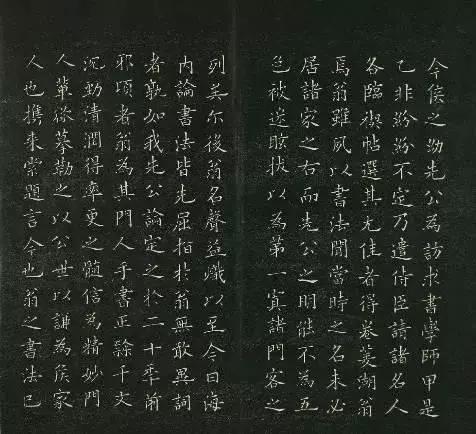 今侯之幼先公為訪求書學師甲是
乙非紛紛不定乃遣侍臣請諸名人
各臨禊帖選其尤佳者得卷菱湖翁
焉翁雖夙以書法聞當時之名未必
居諸家之右而先公之明能不為五
色被迷眩拔以為第一寘諸門客之
列矣尓後翁名聲益熾以至今日海
内論書法皆先屈指於翁無敢異詞
者孰如我先公論定之於二十季前
邪頃者翁為其門人手書正隸千文
沉勁清潤得率更之髓信為精妙門
人輩欲摹勒之以公世以謙為侯家
人也携来索題言今也翁之書法已